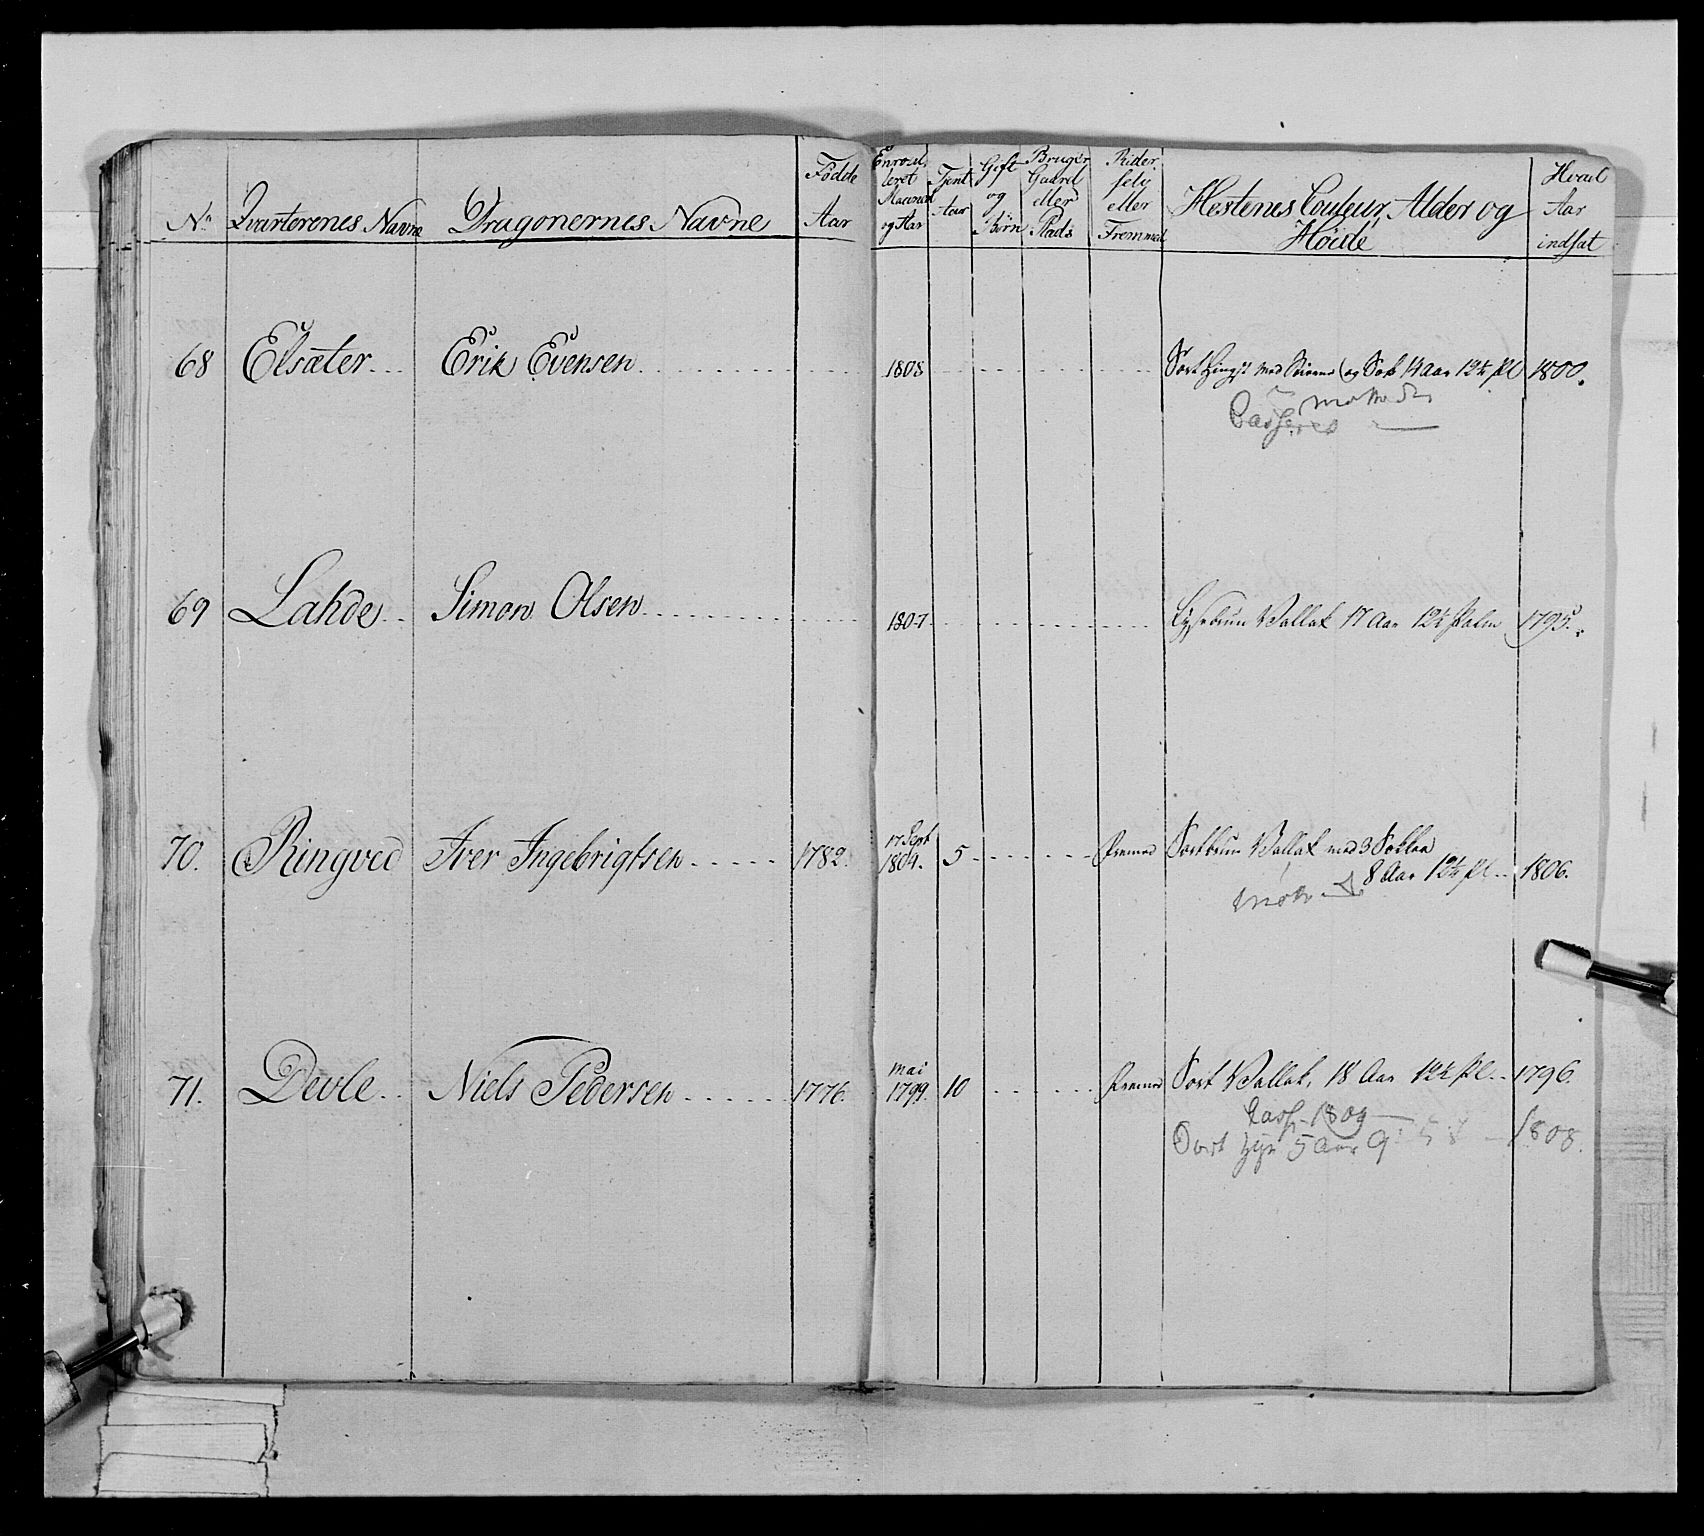 No Qvarterenes Navne Dragonernes Navne Fødde Aar Enroulleret Maaned og Aar Tjent Aar Gift og Børn Bruger Gaard eller Plads Rider selv eller Fremmed Hestenes Couleur, Alder og Høide Hvad Aar indsat
68 Elsæter Erik Evensen 1808 Sort Hingst med Stierne og Sok 14 Aar 12½ Pl 1800.
Casseres
69 Lahde Simon Olsen 1807 Lysebrun Vallak 17 Aar 12½ Palm 1795.
70. Ringved Iver Ingebrigtsen 1782. 17 Sept 1804. 5 Fremed Sortbrun Vallak med 3 Sokker
8 Aar 12½ Pl 1806.
71. Devle Niels Pedersen 1776. Mai 1799. 10 Fremed Sort Vallak, 18 Aar 12½ Pl 1796.
Cass 1809
Sort 5 Aar 9 1808.